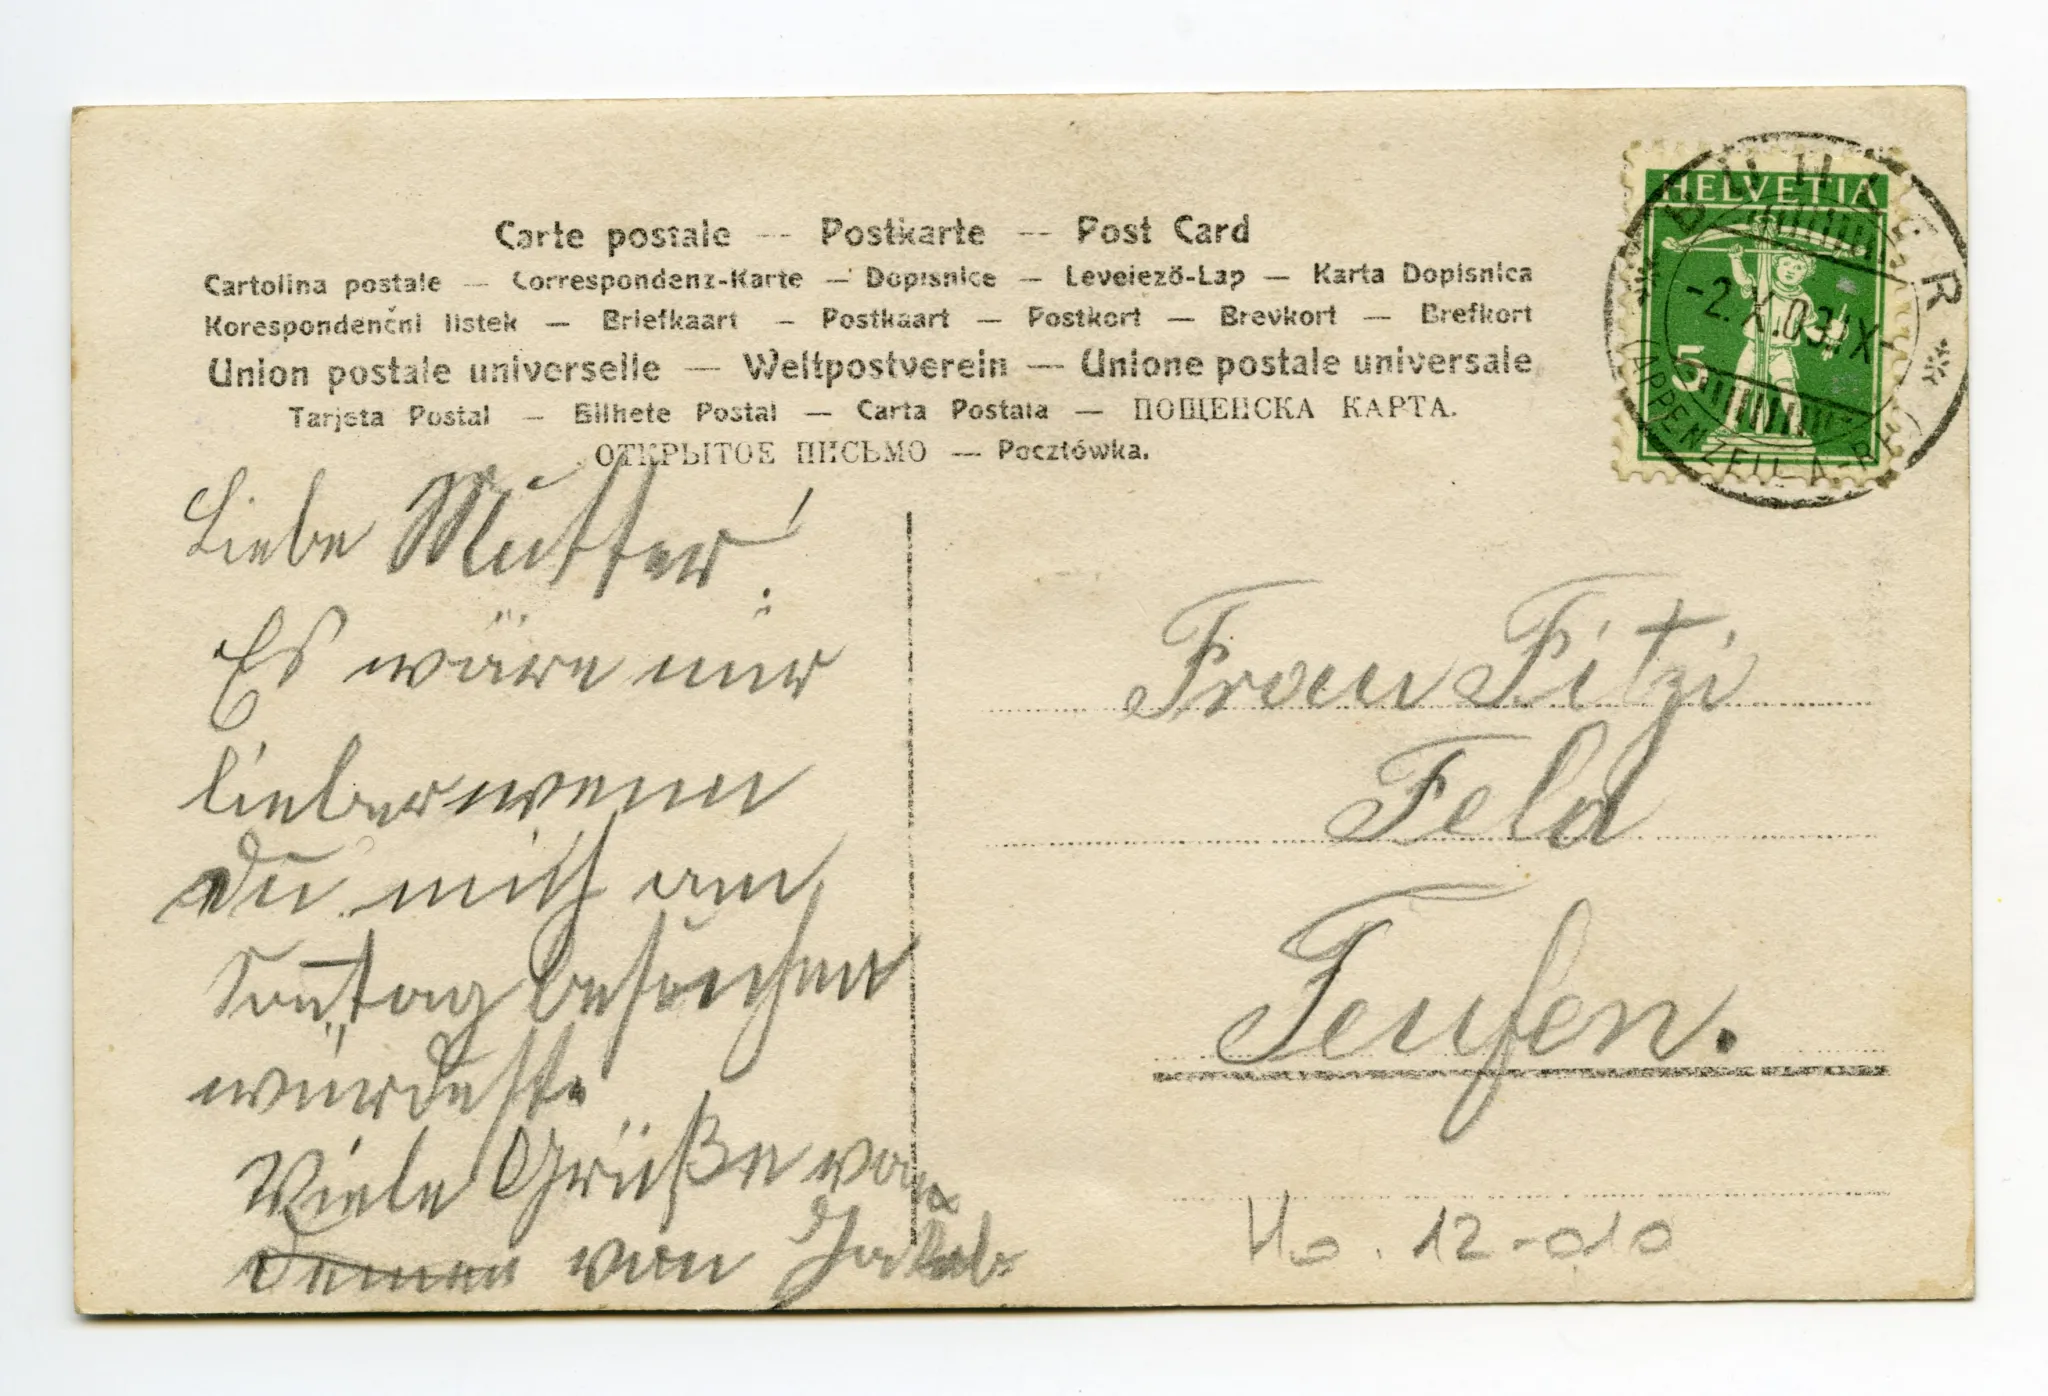 Carte postale -- Postkarte -- Post Card
Cartolina postale — Correspondenz-Karte — Dopisnice — Levelező-Lap — Karta Dopisnica
Korespondenčni listek — Briefkaart — Postkaart — Postkort — Brevkort — Brefkort
Union postale universelle — Weltpostverein — Unione postale universale
Tarjeta Postal — Bilhete Postal — Carta Postala — ПОЩЕНСКА КАРТА.
ОТКРЫТОЕ ПИСЬМО — Pocztówka.
HELVETIA
BÜHLER
-2.X.
5
(APPENZELL A.-RH.)
Liebe Mutter!
Es wäre mir
lieber wenn
Du mich am
Sontag besuchen
würdest.
Viele Grüße von
von Jakob
Frau Fitzi
Feld
Teufen.